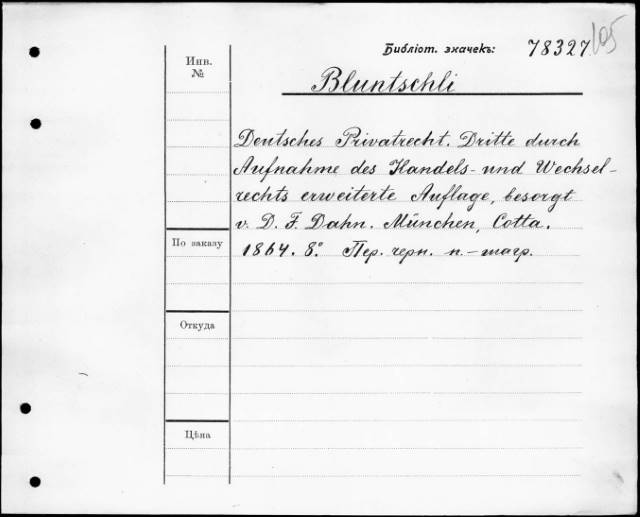 Библіот. значекъ: 78327 105
Инв.
№
Bluntschli
Deutsches Privatrecht. Dritte durch
Aufnahme des Handels- und Wechsel-
rechts erweiterte Auflage, besorgt
v. D. F. Dahn. München, Cotta.
По заказу
1864. 8.° Пер. черн. п.-шагр.
Откуда
Цѣна